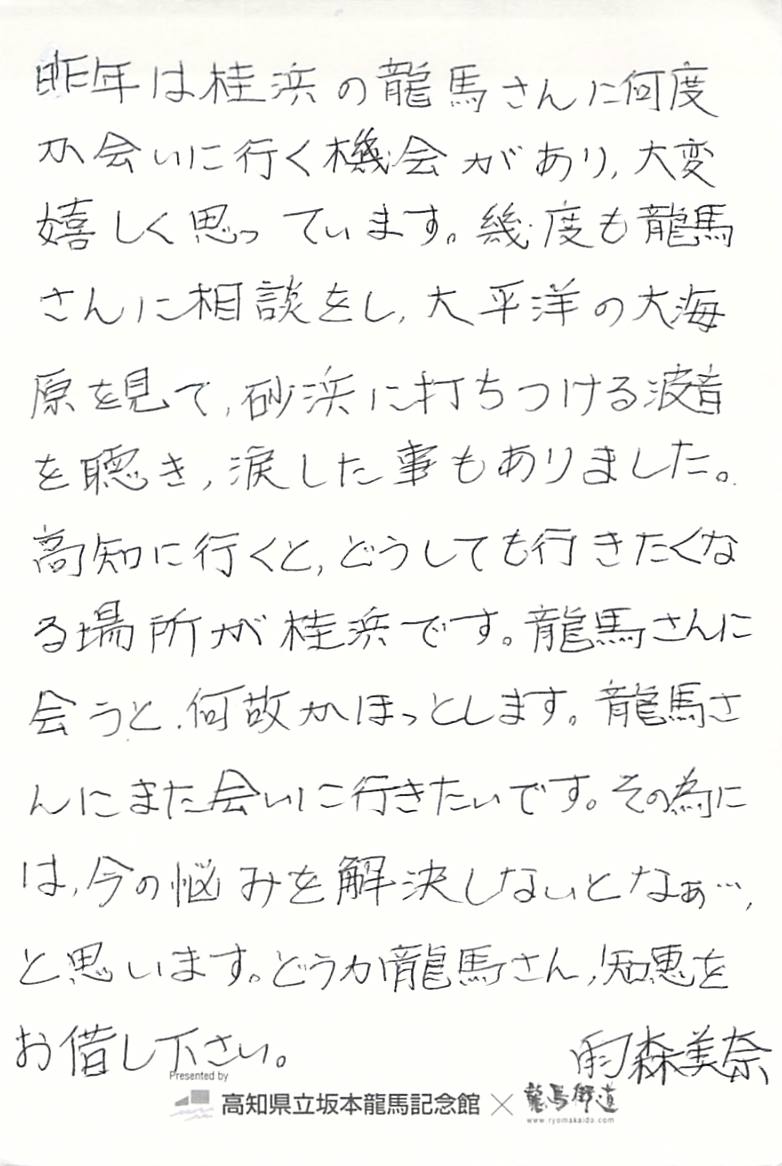 昨年は桂浜の龍馬さんに何度
か会いに行く機会があり,大変
嬉しく思っています。幾度も龍馬
さんに相談をし,大平洋の大海
原を見て,砂浜に打ちつける波音
を聴き,涙した事もありました。
高知に行くと,どうしても行きたくな
る場所が桂浜です。龍馬さんに
会うと,何故かほっとします。龍馬さ
んにまた会いに行きたいです。その為に
は,今の悩みを解決しないとなぁ…,
と思います。どうか龍馬さん,知恵を
お借し下さい。 雨森美奈
Presented by
高知県立坂本龍馬記念館×龍馬街道
www.ryomakaido.com